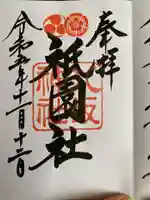 奉拝
祇園社
令和五年十一月十二日